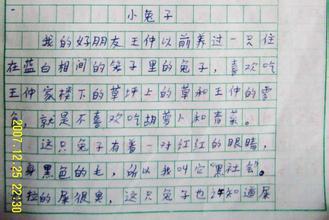 小兔子
我的好朋友王仲以前养过一只住
在蓝白相间的笼子里的兔子，喜欢吃
王仲家楼下的草坪上的草和王仲的零
食，就是不喜欢吃胡萝卜和青菜。
这只兔子有着一对红红的眼睛，
身黑色的毛，所以我叫它“黑社会”。
拉的屎很臭，这只兔子也许知道屎
2007 12 25 22:30